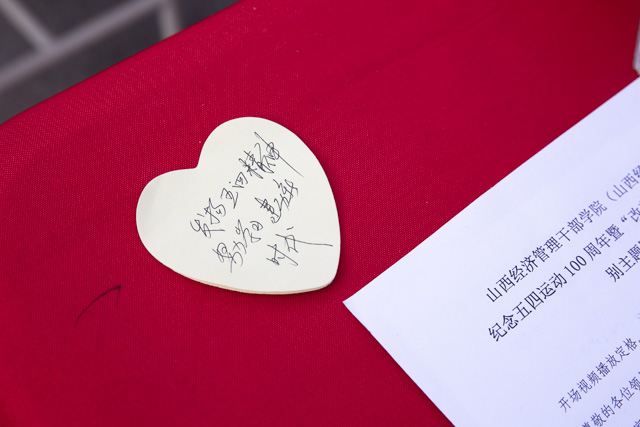 发扬五四精神
努力建功
时代
山西经济管理干部学院（山西经
纪念五四运动 100 周年暨“改
别主题
开场视频播放定格，
尊敬的各位领